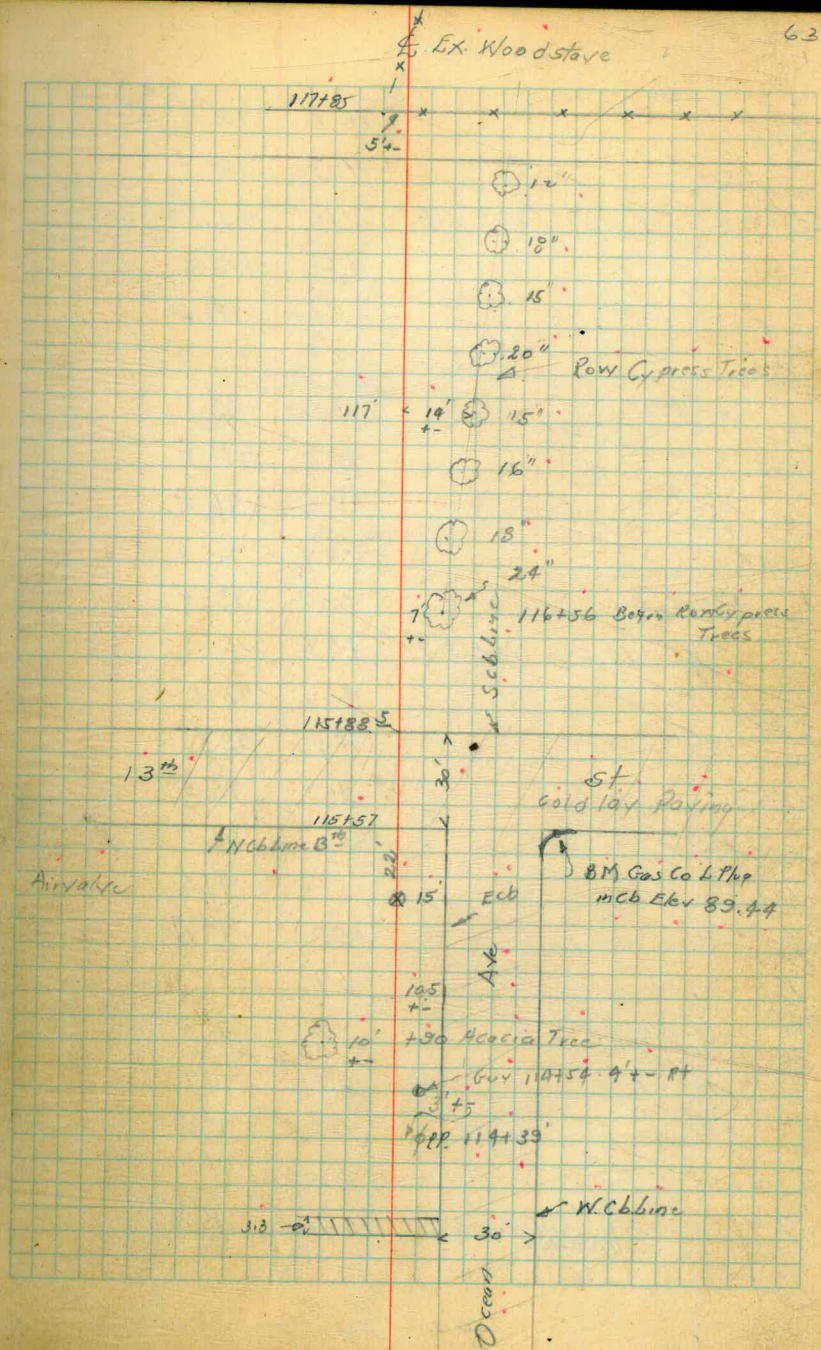 63
℄ Ex. Woodstave
117+85
5'+-
12"
18"
15"
20"
Row Cypress Trees
117' 14' +- 15"
16"
18"
24"
7' +- 116+56 Begin Row Cypress
Trees
S cb line
115+88.5
13th 30' St
Cold lay Paving
115+57
N Cb line 13th
22'
BM Gas Co L Plug
in Cb Elev 89.44
Airvalve
15' Ecb
Ave
10.5 +-
10' +- +90 Acacia Tree
Guy 114+54 4'+- Rt
3'+-
PP. 114+39'
W. Cb. line
3.3 30'
Ocean